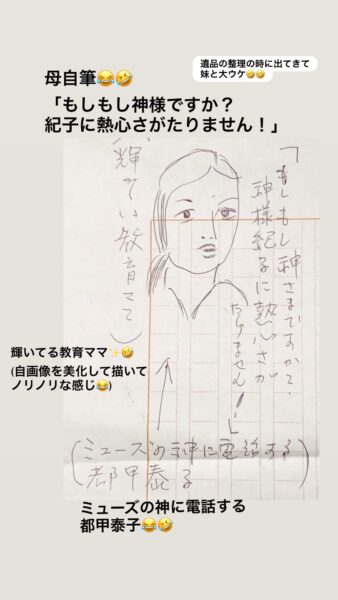 遺品の整理の時に出てきて
妹と大ウケ🤣🤣
母自筆😂🤣
「もしもし神様ですか？
紀子に熱心さがたりません！」
「もしもし神さまですか？
神様紀子に熱心さが
たりません！」
（輝やい教育ママ）
輝いてる教育ママ✨🤣
(自画像を美化して描いて
ノリノリな感じ😂)
（ミューズの神に電話する
都甲泰子）
ミューズの神に電話する
都甲泰子😂🤣